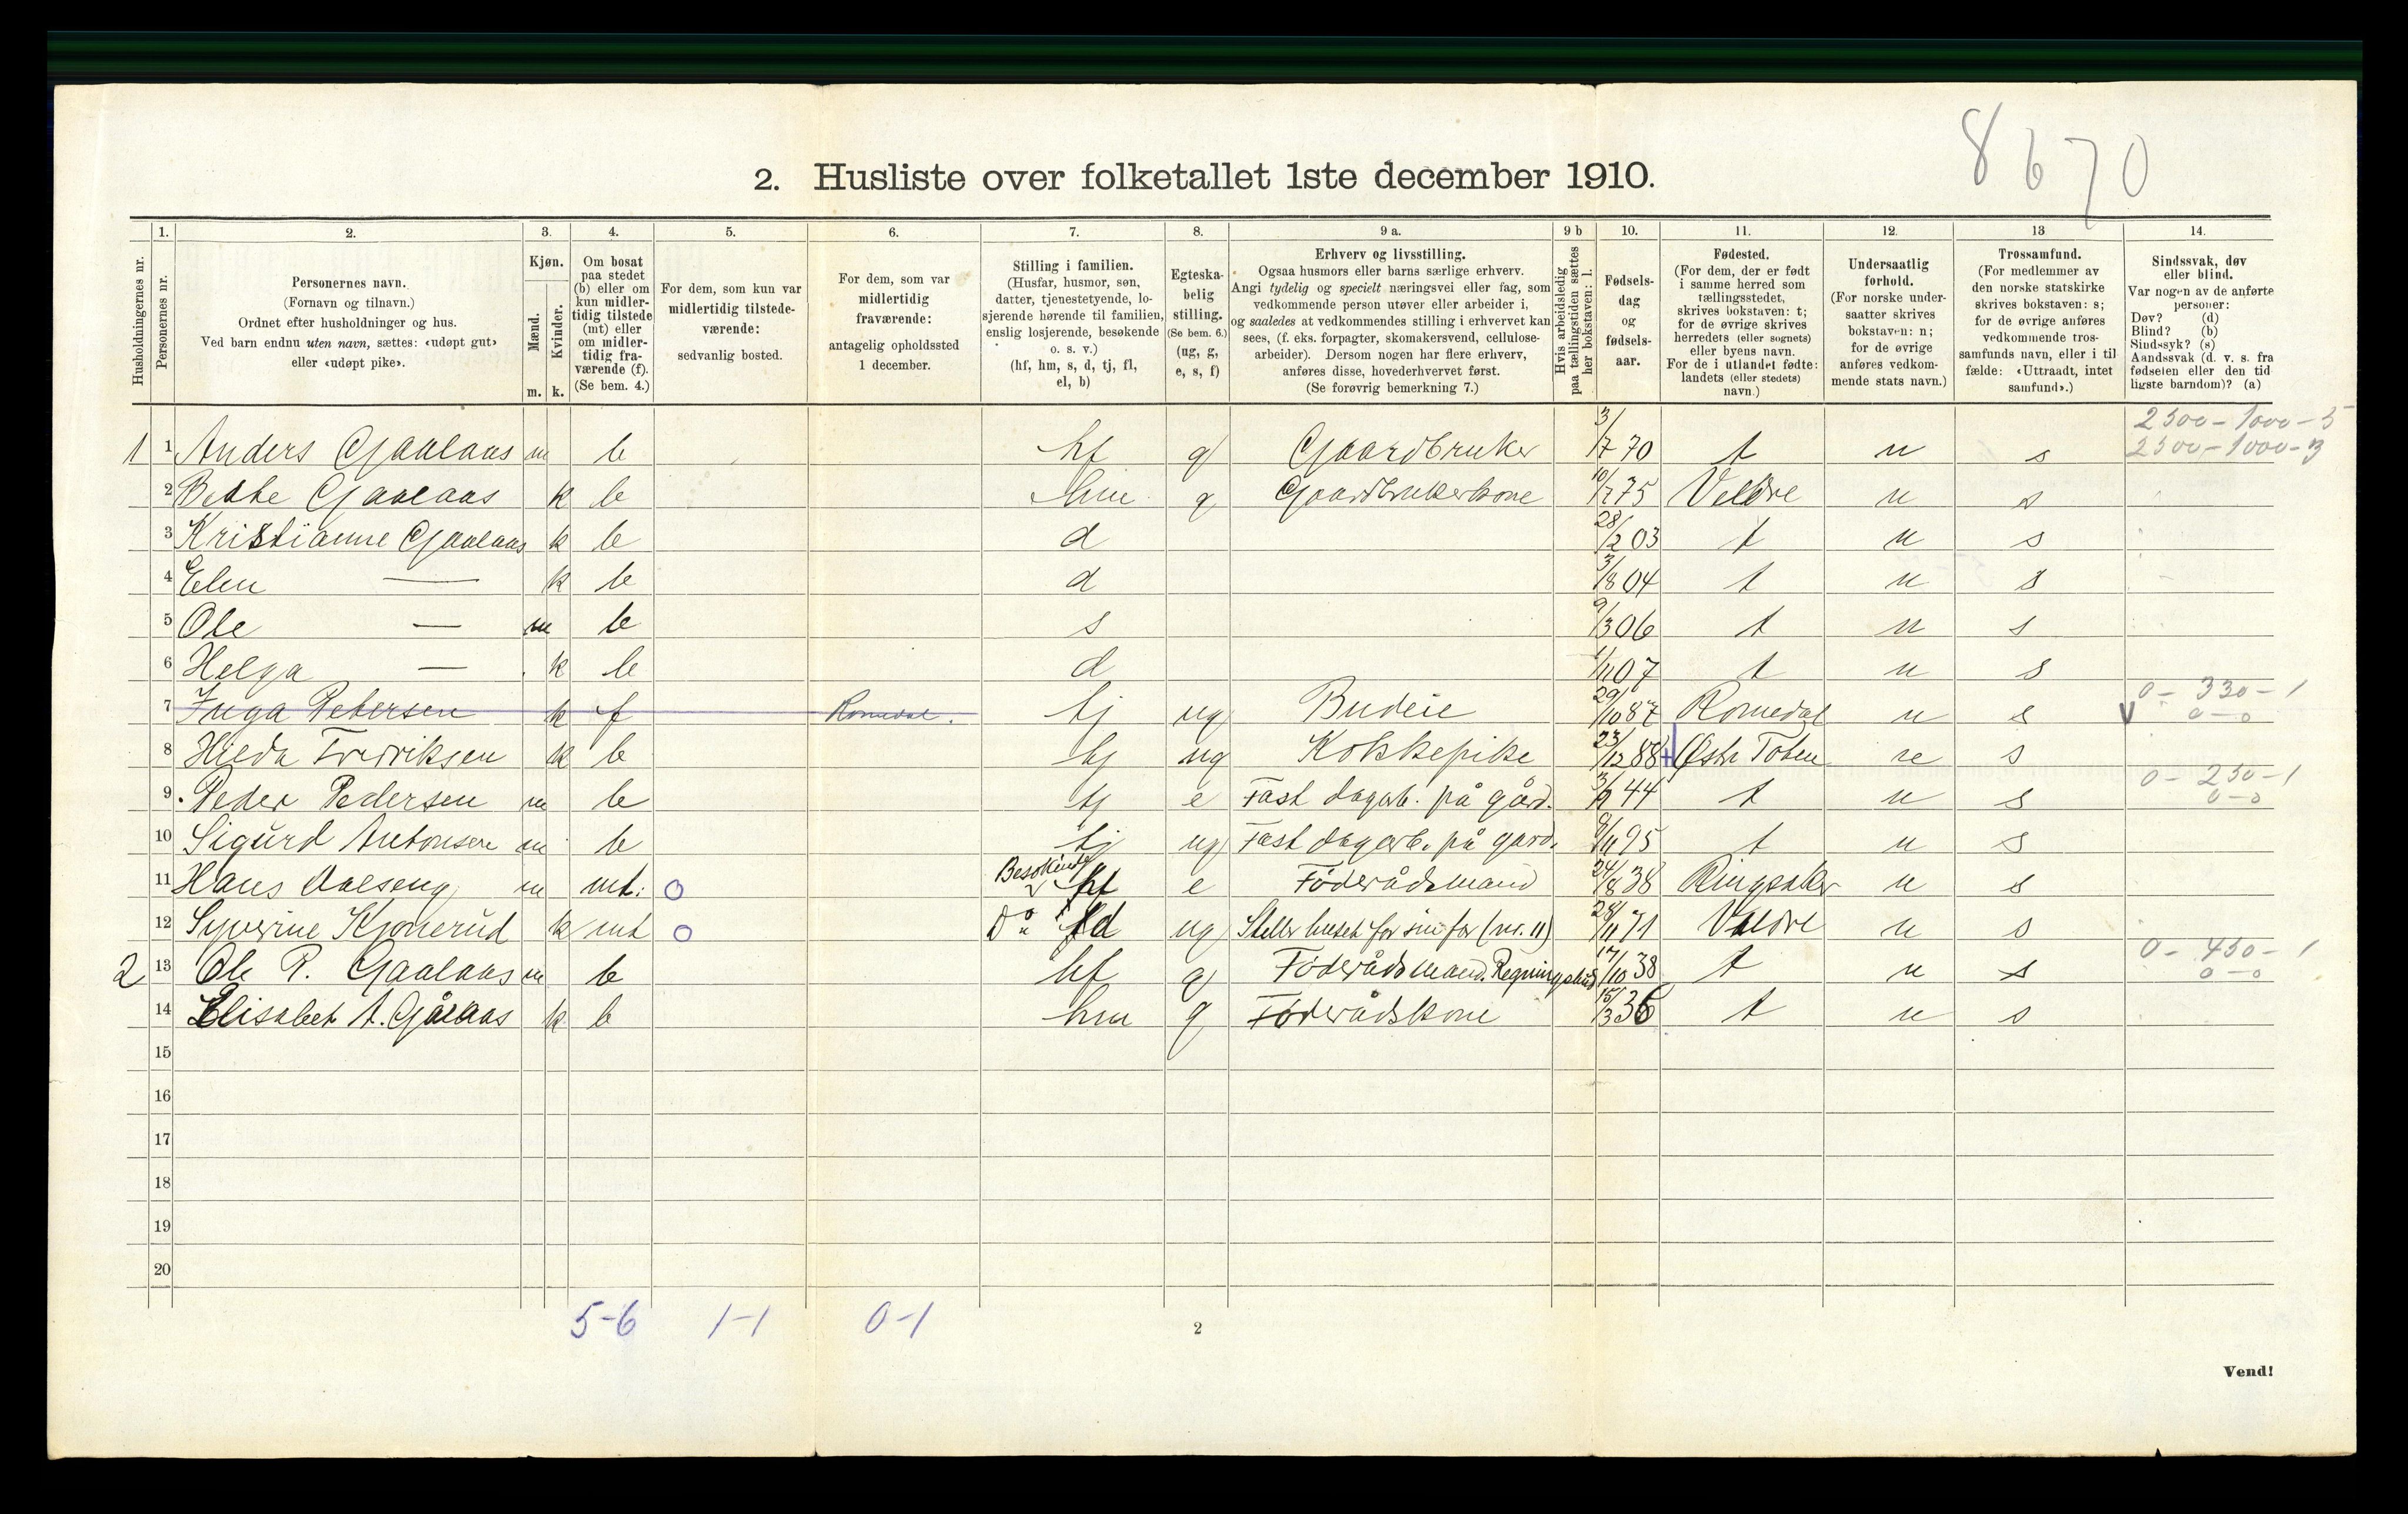 8670
2. Husliste over folketallet 1ste december 1910.
1. 2. 3. 4. 5. 6. 7. 8. 9 a. 9 b 10. 11. 12. 13 14.
Husholdningernes nr.
Personernes nr.
Personernes navn.
(Fornavn og tilnavn.)
Ordnet efter husholdninger og hus.
Ved barn endnu uten navn, sættes: «udøpt gut»
eller «udøpt pike».
Kjøn.
Mænd.
Kvinder.
m. k.
Om bosat
paa stedet
(b) eller om
kun midler-
tidig tilstede
(mt) eller
om midler-
tidig fra-
værende (f).
(Se bem. 4.)
For dem, som kun var
midlertidig tilstede-
værende:
sedvanlig bosted.
For dem, som var
midlertidig
fraværende:
antagelig opholdssted
1 december.
Stilling i familien.
(Husfar, husmor, søn,
datter, tjenestetyende, lo-
sjerende hørende til familien,
enslig losjerende, besøkende
o. s. v.)
(hf, hm, s, d, tj, fl,
el, b)
Egteska-
belig
stilling.
(Se bem. 6.)
(ug, g,
e, s, f)
Erhverv og livsstilling.
Ogsaa husmors eller barns særlige erhverv.
Angi tydelig og specielt næringsvei eller fag, som
vedkommende person utøver eller arbeider i,
og saaledes at vedkommendes stilling i erhvervet kan
sees, (f. eks. forpagter, skomakersvend, cellulose-
arbeider). Dersom nogen har flere erhverv,
anføres disse, hovederhvervet først.
(Se forøvrig bemerkning 7.)
Hvis arbeidsledig
paa tællingstiden sættes
her bokstaven: l.
Fødsels-
dag
og
fødsels-
aar.
Fødested.
(For dem, der er født
i samme herred som
tællingsstedet,
skrives bokstaven: t;
for de øvrige skrives
herredets (eller sognets)
eller byens navn.
For de i utlandet fødte:
landets (eller stedets)
navn.)
Undersaatlig
forhold.
(For norske under-
saatter skrives
bokstaven: n;
for de øvrige
anføres vedkom-
mende stats navn.)
Trossamfund.
(For medlemmer av
den norske statskirke
skrives bokstaven: s;
for de øvrige anføres
vedkommende tros-
samfunds navn, eller i til
fælde: «Uttraadt, intet
samfund».)
Sindssvak, døv
eller blind.
Var nogen av de anførte
personer:
Døv? (d)
Blind? (b)
Sindssyk? (s)
Aandssvak (d. v. s. fra
fødselen eller den tid
ligste barndom)? (a)
2500-1000-5
1 1 Anders Gjaalaas m b hf g Gaardbruker 3/7 70 t n s 2500-1000-3
2 Berthe Gjaalaas k b hm g Gaardbrukerkone 10/7 75 Veldre n s
3 Kristianne Gjaalaas k b d 28/2 03 t n s
4 Elen — k b d 3/8 04 t n s
5 Ole — m b s 9/3 06 t n s
6 Helga — k b d 1/11 07 t n s
7 Inga Petersen k f Romedal. tj ug Budeie 29/10 87 Romedal n s 0-330-1
0-0
8 Hilda Fredriksen k b tj ug Kokkepike 23/12 88 Østr Toten n s
9 Peder Pedersen m b tj e Fast dagarb. på gård. 44 t n s 0-250-1
0-0
10 Sigurd Antonsen m b tj ug Fast dagarb. på gård. 95 t n s
11 Hans Dalseng m mt: Besøkende hf e Föderådsmand 24/8 38 Ringsaker n s
12 Syverine Kjonerud k mt Do d ug Steller huset for sin far (nr. 11) 28/11 71 Veldre n s
2 13 Ole P. Gaalaas m b hf g Föderådsmand. 17/10 38 t n s 0-450-1
0-0
14 Elisabet A. Gjålaas k b hm g Föderådskone 15/3 36 t n s
15
16
17
18
19
20
5-6 1-1 0-1
2
Vend!